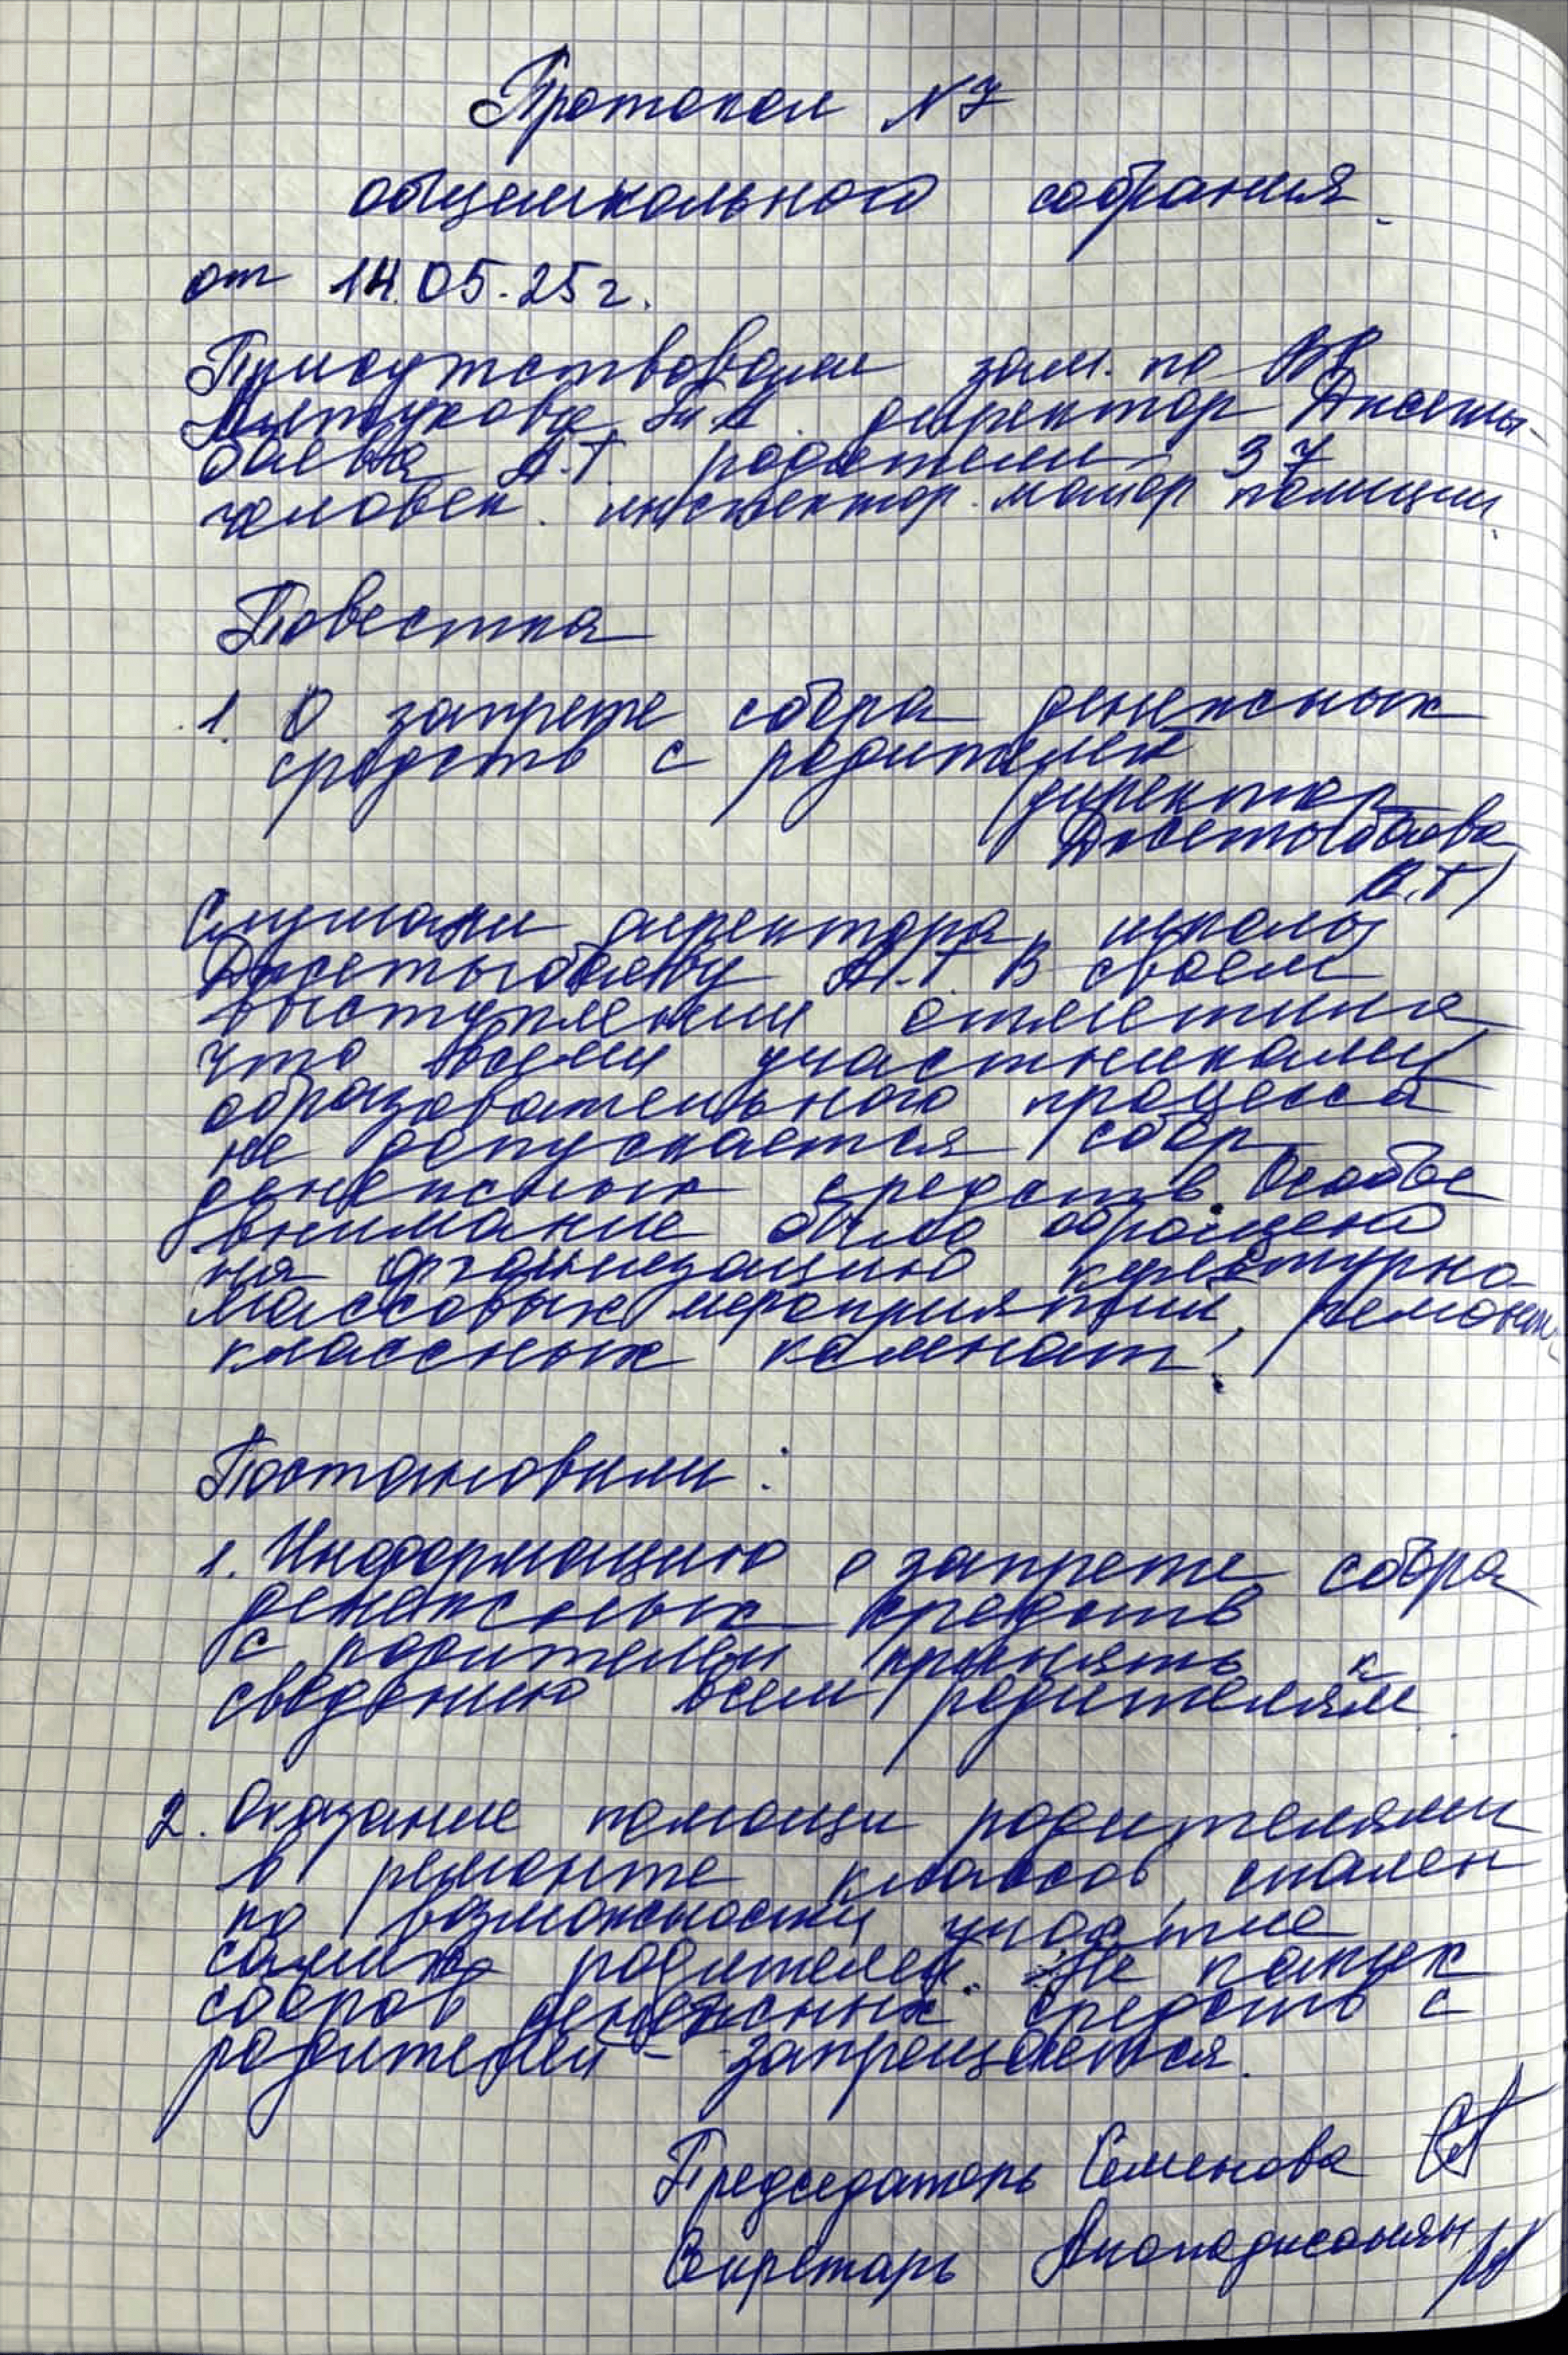 Протокол N 7
общешкольного собрания
от 14.05.25 г.
Присутствовали зам. по ВР
директор Джеты-
баева А.Т. родители 37
человек. инспектор. майор полиции.
Повестка
1. О запрете сбора денежных
средств с родителей
(директор
Джетыбаева
А.Т)
Слушали директора школы
Джетыбаеву А.Т. В своем
выступлении отметила
что всеми участниками
образовательного процесса
не допускается сбор
денежных средств. Особое
внимание было обращено
на организацию культурно
массовых мероприятий, ремонт
классных комнат.
Постановили:
1. Информацию о запрете сбора
денежных средств
с родителей принять к
сведению всем родителям
2. Оказание помощи родителями
в ремонте классов, спален
по возможности участие
самих родителей. Не
сборов денежных средств с
родителей - запрещается.
Председатель Семенова
Секретарь